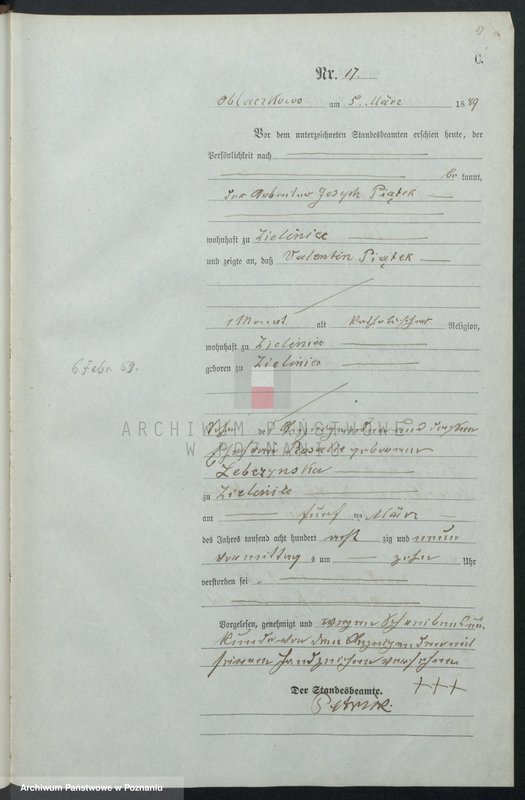 17
C.
Nr. 17.
Oblaczkowo am 5. März 1889
Vor dem unterzeichneten Standesbeamten erschien heute, der
Persönlichkeit nach
be kannt,
der Arbeiter Joseph Piątek
wohnhaft zu Zielinice
und zeigte an, daß Valentin Piątek
1 Monat alt katholischer Religion,
wohnhaft zu Zielinice
geboren zu Zielinice
6 Febr. 89.
Sohn des Anzeigenden und dessen
Ehefrau Rosalie geborenen
Lebczynska
zu Zielinice
am fünf ten März
des Jahres tausend acht hundert acht zig und neun
Vormittag s um zehn Uhr
verstorben sei.
Vorgelesen, genehmigt und wegen Schreibensun-
kunde von dem Anzeigenden mit
seinem Handzeichen versehen
+++
Der Standesbeamte.
ARCHIWUM PAŃSTWOWE
W POZNANIU
Archiwum Państwowe w Poznaniu